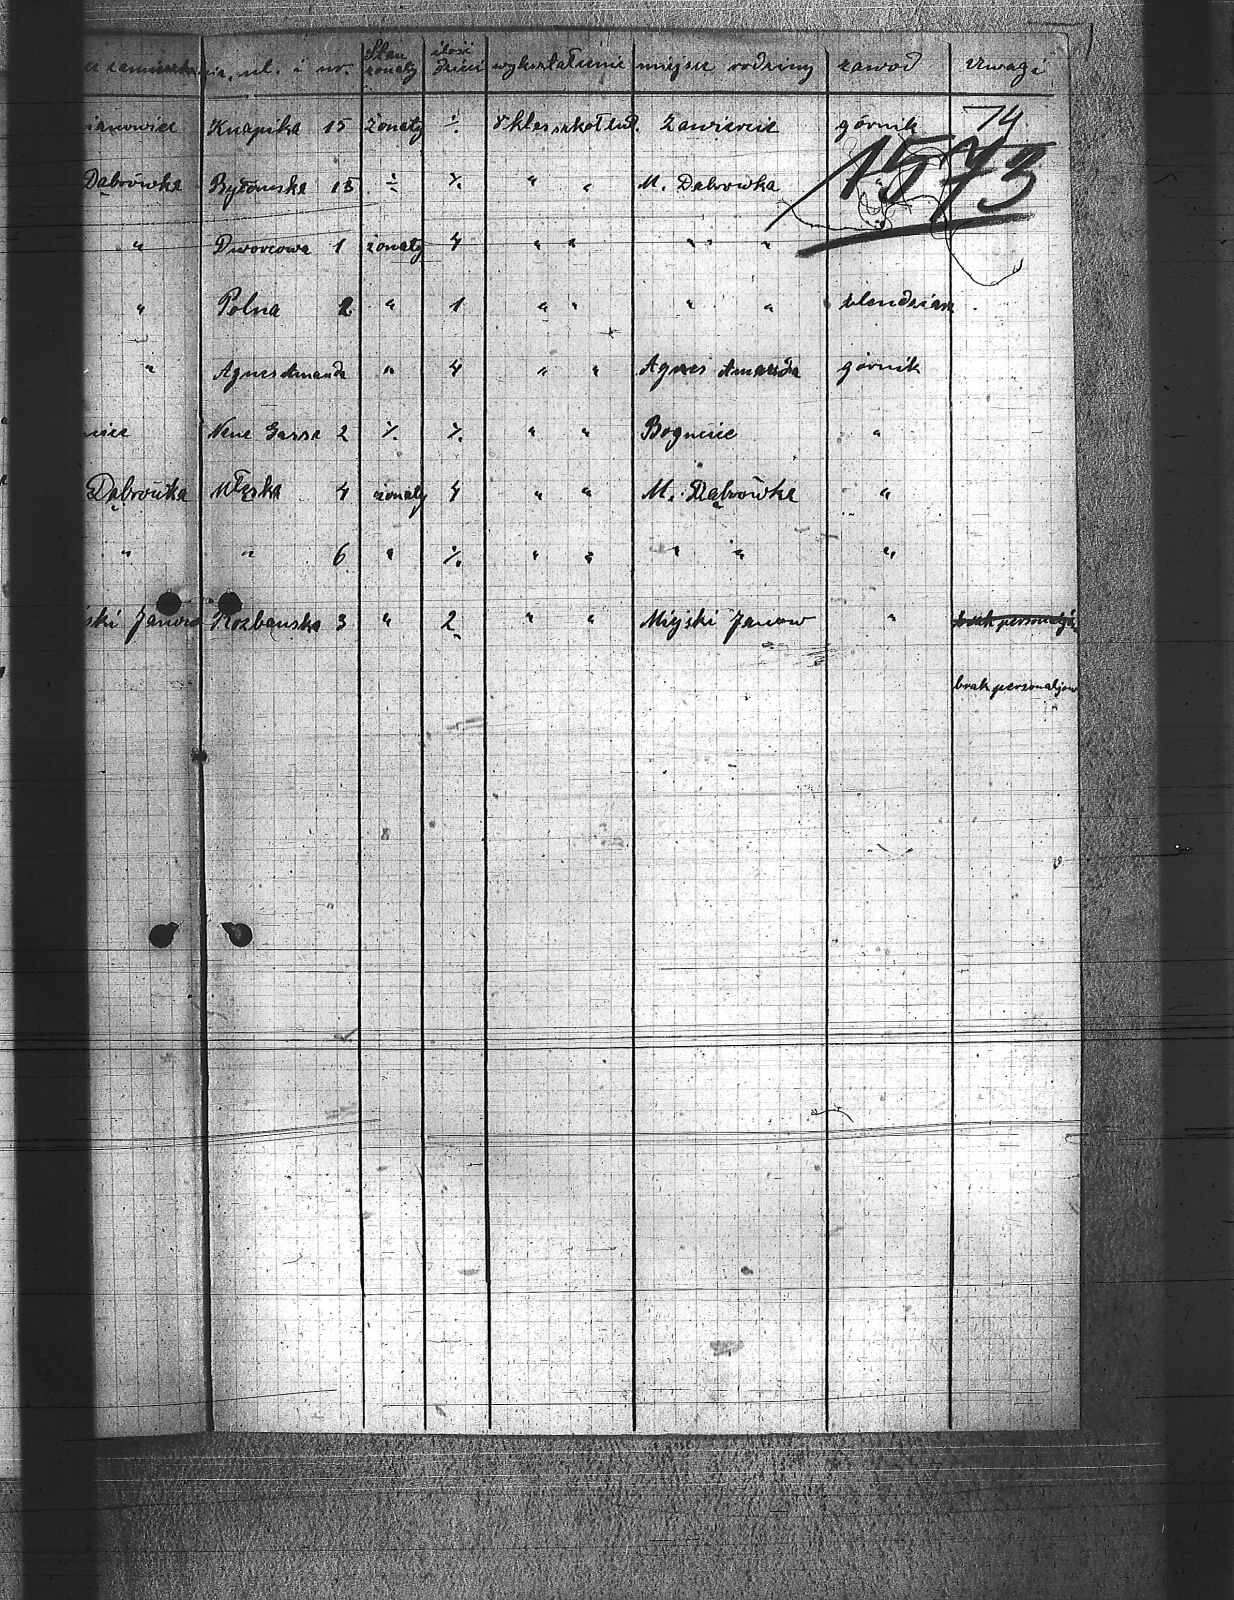 zamieszkania, ul. i nr. Stan żonaty ilość dzieci wykształcenie miejsce rodziny zawod Uwagi
74
ianowice Knapika 15 żonaty ·/. klas szkoł lud. Zawiercie górnik
1573
Dąbrówka Bytomska 15 ÷ ·/. " " M. Dąbrowka
" Dworcowa 1 żonaty 4 " " " "
" Polna 2 " 1 " " " "
" Agnes Amanda " 4 " " Agnes Amanda górnik
Neue Gasse 2 ·/. ·/. " " "
Dąbrówka Męska 4 żonaty 4 " " M. Dąbrówka "
" " 6 " ·/. " " " " "
ski Janow Rozbarska 3 " 2 " " Miejski Janow " brak personaljów
brak personaljow